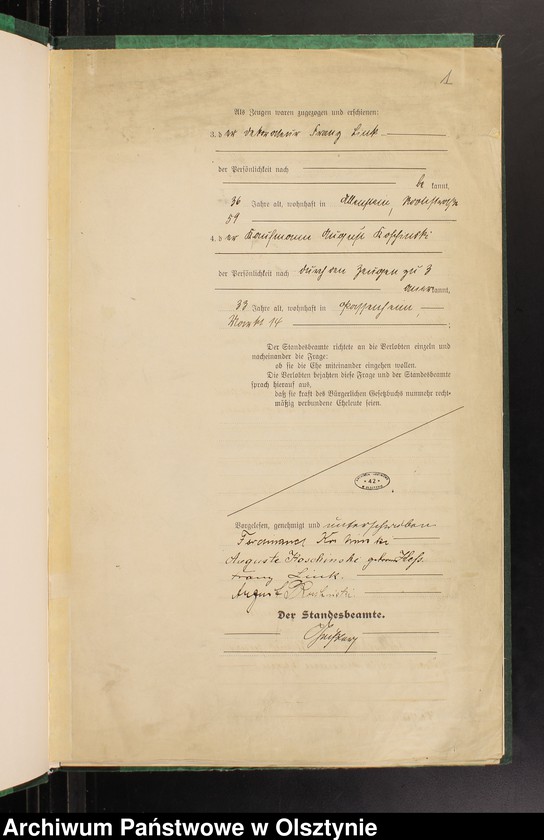 1
Als Zeugen waren zugezogen und erschienen:
3. der Dekorateur Franz Link
der Persönlichkeit nach
be kannt,
36 Jahre alt, wohnhaft in Allenstein,
59
4. der Kaufmann August Koschinski
der Persönlichkeit nach durch den Zeugen zu 3
anerkannt,
33 Jahre alt, wohnhaft in Passenheim,
Markt 14 ;
Der Standesbeamte richtete an die Verlobten einzeln und
nacheinander die Frage:
ob sie die Ehe miteinander eingehen wollen.
Die Verlobten bejahten diese Frage und der Standesbeamte
sprach hierauf aus,
daß sie kraft des Bürgerlichen Gesetzbuchs nunmehr recht-
mäßig verbundene Eheleute seien.
* 42 *
Vorgelesen, genehmigt und unterschrieben
Ferdinand
Auguste Koschinski geborene
Franz Link
August Koschinski
Der Standesbeamte.
Archiwum Państwowe w Olsztynie